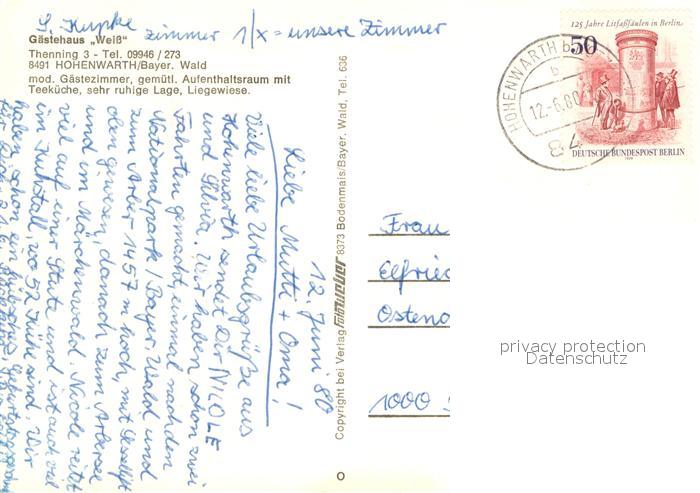 S. Kupke zimmer 1/x = unsere Zimmer
Gästehaus „Weiß"
Thenning 3 - Tel. 09946 / 273
8491 HOHENWARTH/Bayer. Wald
mod. Gästezimmer, gemütl. Aufenthaltsraum mit
Teeküche, sehr ruhige Lage, Liegewiese.
12. Juni 80
Liebe Mutti + Oma!
Viele liebe Urlaubsgrüße aus
Hohenwarth sendet Dir NICOLE
und Silvia. Wir haben schon zwei
Fahrten gemacht, einmal nach den
Nationalpark / Bayer. Wald und
zum Arber 1457 m hoch, mit Sessellift
oben gewesen, danach zum Arbersee
und im Märchenwald. Nicole reitet
viel auf einer Stute und ist auch viel
im Kuhstall, wo 52 Kühe sind. Wir
haben schon ein hübsches Geburtstags
für
Copyright bei Verlag 8373 Bodenmais/Bayer. Wald, Tel. 636
125 Jahre Litfaßsäulen in Berlin
50
DEUTSCHE BUNDESPOST BERLIN
1979
HOHENWARTH b
b
12.-6.80
84
Frau
Elfried
Osteno
1000
privacy protection
Datenschutz